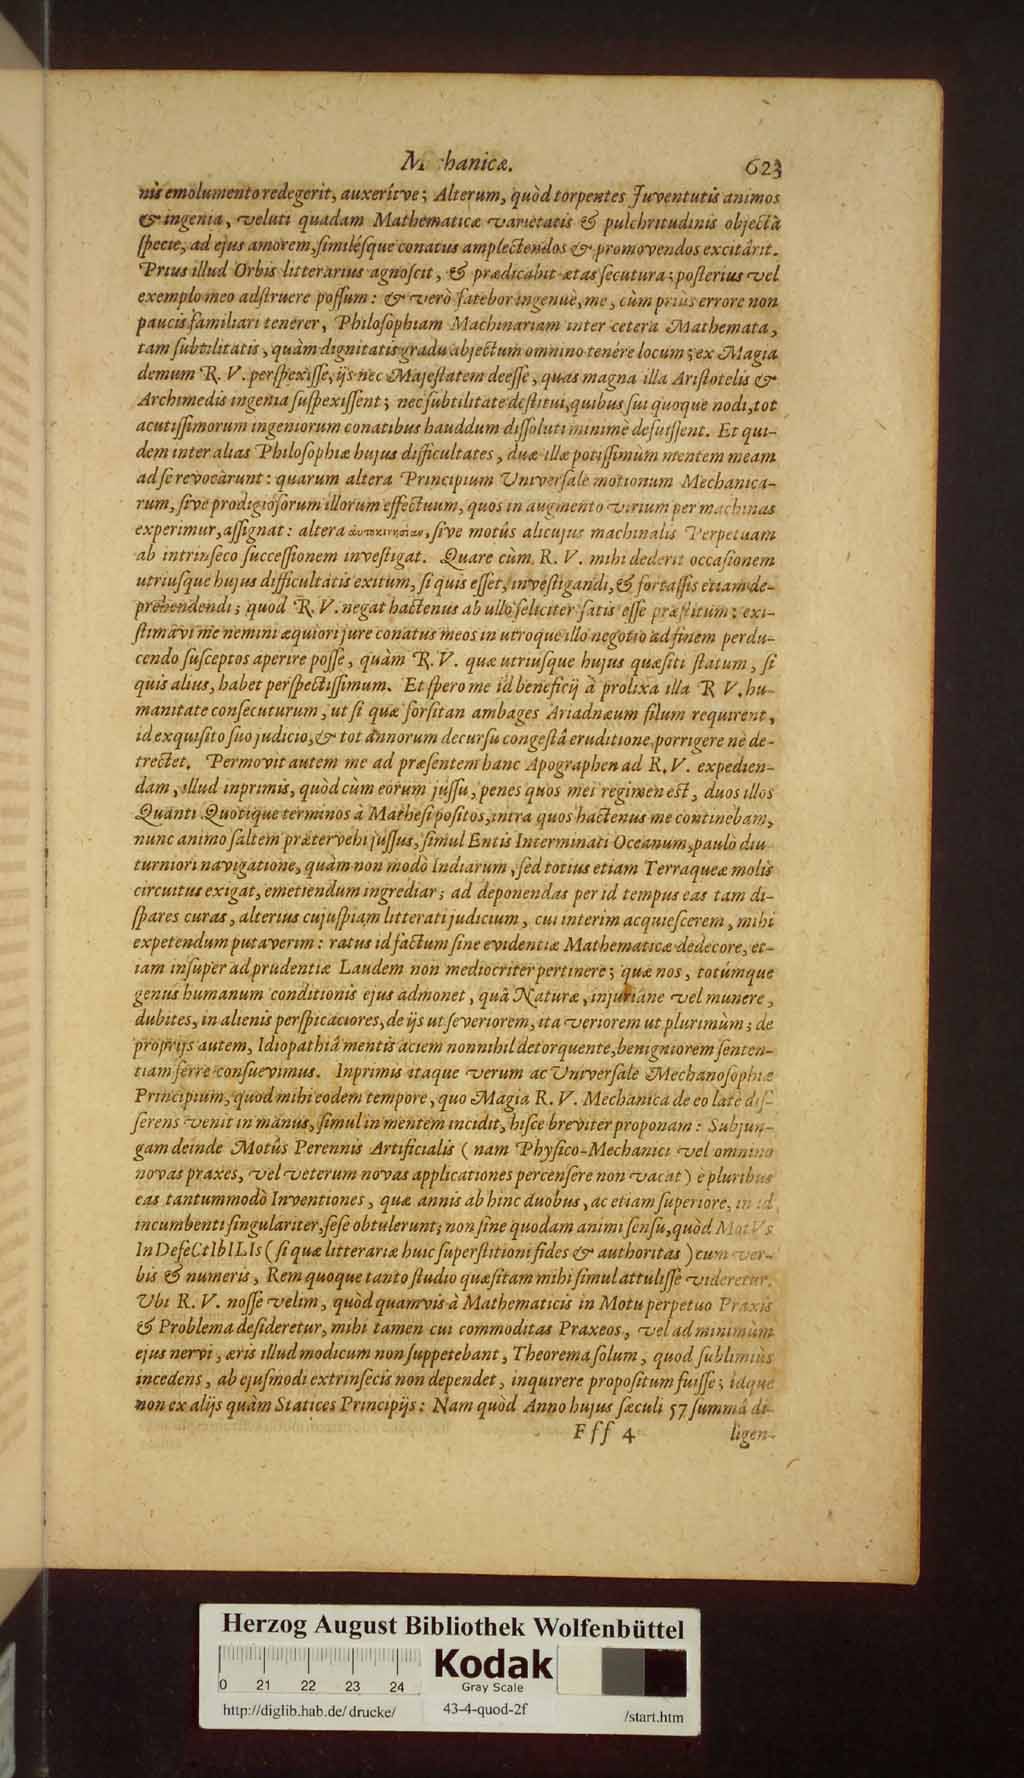 M hanicæ. 623
nis emolumento redegerit, auxerítve; Alterum, quòd torpentes Juventutis animos
& ingenia, veluti quadam Mathematicæ varietatis & pulchritudinis objectâ
ſpecie, ad ejus amorem, ſimiléſque conatus amplectendos & promovendos excitârit.
Prius illud Orbis litterarius agnoſcit, & prædicabit ætas ſecutura; poſterius vel
exemplo meo adſtruere poſſum: & verò fateor ingenuè, me, cùm priùs errore non
paucis familiari tenerer, Philoſophiam Machinariam inter cetera Mathemata,
tam ſubtilitatis, quàm dignitatis gradu abjectum omnino tenére locum; ex Magia
demum R. V. perſpexiſſe, ijs nec Majeſtatem deeſſe, quas magna illa Ariſtotelis &
Archimedis ingenia ſuſpexiſſent; nec ſubtilitate deſtitui, quibus ſui quoque nodi, tot
acutiſſimorum ingeniorum conatibus hauddum diſſoluti minimè defuiſſent. Et qui-
dem inter alias Philoſophiæ hujus difficultates, duæ illæ potiſſimùm mentem meam
ad ſe revocàrunt: quarum altera Principium Univerſale motionum Mechanica-
rum, ſive prodigioſorum illorum effectuum, quos in augmento virium per machinas
experimur, aſſignat: altera αυτοκινησίαν, ſive motûs alicujus machinalis Perpetuam
ab intrinſeco ſucceſſionem inveſtigat. Quare cùm R. V. mihi dederit occaſionem
utriuſque hujus difficultatis exitum, ſi quis eſſet, inveſtigandi, & fortaſſis etiam de-
prehendendi; quod R. V. negat hactenus ab ullo feliciter ſatis eſſe præſtitum: exi-
ſtimavi me nemini æquiori jure conatus meos in utroque illo negotio ad finem perdu-
cendo ſuſceptos aperire poſſe, quàm R. V. quæ utriuſque hujus quæſiti ſtatum, ſi
quis alius, habet perſpectiſſimum. Et ſpero me id beneficij à prolixa illa R V. hu-
manitate conſecuturum, ut ſi quæ forſitan ambages Ariadnæum filum requirent,
id exquiſito ſuo judicio, & tot annorum decurſu congeſtâ eruditione, porrigere ne de-
trectet. Permovit autem me ad præſentem hanc Apographen ad R. V. expedien-
dam, illud inprimis, quòd cùm eorum juſſu, penes quos mei regimen eſt, duos illos
Quanti Quotique terminos à Matheſi poſitos, intra quos hactenus me continebam,
nunc animo ſaltem prætervehi juſſus, ſimul Entis Interminati Oceanum, paulò diu
turniori navigatione, quàm non modò Indiarum, ſed totius etiam Terraqueæ molis
circuitus exigat, emetiendum ingrediar; ad deponendas per id tempus eas tam di-
ſpares curas, alterius cujuſpiam litterati judicium, cui interim acquieſcerem, mihi
expetendum putaverim: ratus id factum ſine evidentiæ Mathematicæ dedecore, et-
iam inſuper ad prudentiæ Laudem non mediocriter pertinere; quæ nos, totúmque
genus humanum conditionis ejus admonet, quâ Naturæ, injuriâne vel munere,
dubites, in alienis perſpicaciores, de ijs ut ſeveriorem, ita veriorem ut plurimùm; de
proprijs autem, Idiopathiâ mentis aciem nonnihil detorquente, benigniorem ſenten-
tiam ferre conſuevimus. Inprimis itaque verum ac Univerſale Mechanoſophiæ
Principium, quod mihi eodem tempore, quo Magia R. V. Mechanica de eo late diſ-
ſerens venit in manus, ſimul in mentem incidit, hiſce breviter proponam: Subjun-
gam deinde Motûs Perennis Artificialis (nam Phyſico-Mechanici vel omnino
novas praxes, vel veterum novas applicationes percenſere non vacat) è pluribus
eas tantummodò Inventiones, quæ annis ab hinc duobus, ac etiam ſuperiore, in id
incumbenti ſingulariter, ſeſe obtulerunt; non ſine quodam animi ſenſu, quòd MotVs
InDefeCtIbILIs (ſi qua litterariæ huic ſuperſtitioni fides & authoritas) cum ver-
bis & numeris, Rem quoque tanto ſtudio quæſitam mihi ſimul attuliſſe videretur.
Ubi R. V. noſſe velim, quòd quamvis à Mathematicis in Motu perpetuo Praxis
& Problema deſideretur, mihi tamen cui commoditas Praxeos, vel ad minimùm
ejus nervi, æris illud modicum non ſuppetebant, Theorema ſolum, quod ſublimiùs
incedens, ab ejuſmodi extrinſecis non dependet, inquirere propoſitum fuiſſe; idque
non ex alijs quàm Statices Principijs: Nam quòd Anno hujus ſæculi 57 ſummâ di-
Fff 4 ligen-
Herzog August Bibliothek Wolfenbüttel
Kodak
Gray Scale
0 21 22 23 24
http://diglib.hab.de/drucke/ 43-4-quod-2f /start.htm